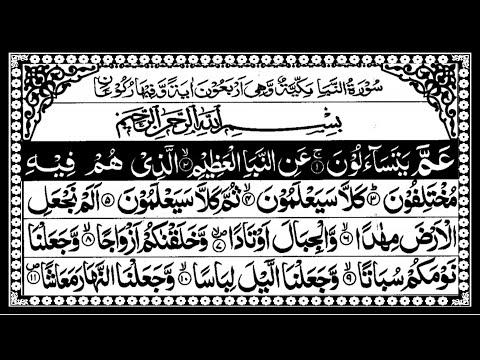 سُوْرَةُ النَّبَاِ مَكِّيَّةٌ وَّهِىَ اَرْبَعُوْنَ اٰيَةً وَّفِيْهَا رُكُوْعَانِ
بِسْمِ اللّٰهِ الرَّحْمٰنِ الرَّحِيْمِ
عَمَّ يَتَسَآءَلُوْنَ ۚ﴿۱﴾ عَنِ النَّبَاِ الْعَظِيْمِ ۙ﴿۲﴾ الَّذِىْ هُمْ فِيْهِ
مُخْتَلِفُوْنَ ؕ﴿۳﴾ كَلَّا سَيَعْلَمُوْنَ ۙ﴿۴﴾ ثُمَّ كَلَّا سَيَعْلَمُوْنَ ﴿۵﴾ اَلَمْ نَجْعَلِ
الْاَرْضَ مِهٰدًا ۙ﴿۶﴾ وَّالْجِبَالَ اَوْتَادًا ۪ۙ﴿۷﴾ وَّخَلَقْنٰكُمْ اَزْوَاجًا ۙ﴿۸﴾ وَّجَعَلْنَا
نَوْمَكُمْ سُبَاتًا ۙ﴿۹﴾ وَّجَعَلْنَا الَّيْلَ لِبَاسًا ۙ﴿۱۰﴾ وَّجَعَلْنَا النَّهَارَ مَعَاشًا ۪﴿۱۱﴾